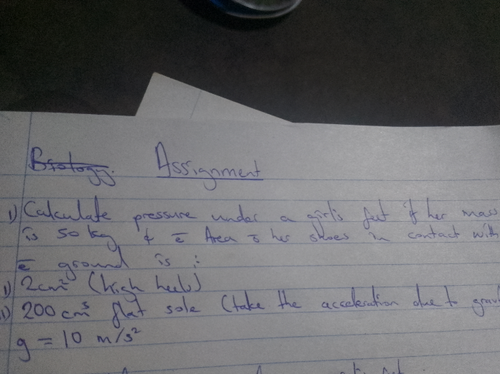 Biology. Assignment
1) Calculate pressure under a girl's feet if her mass
is 50 kg & ē Area ō her shoes in contact with
ē ground is :
i) 2cm² (high heels)
ii) 200cm² flat sole (take the acceleration due to
g = 10 m/s²